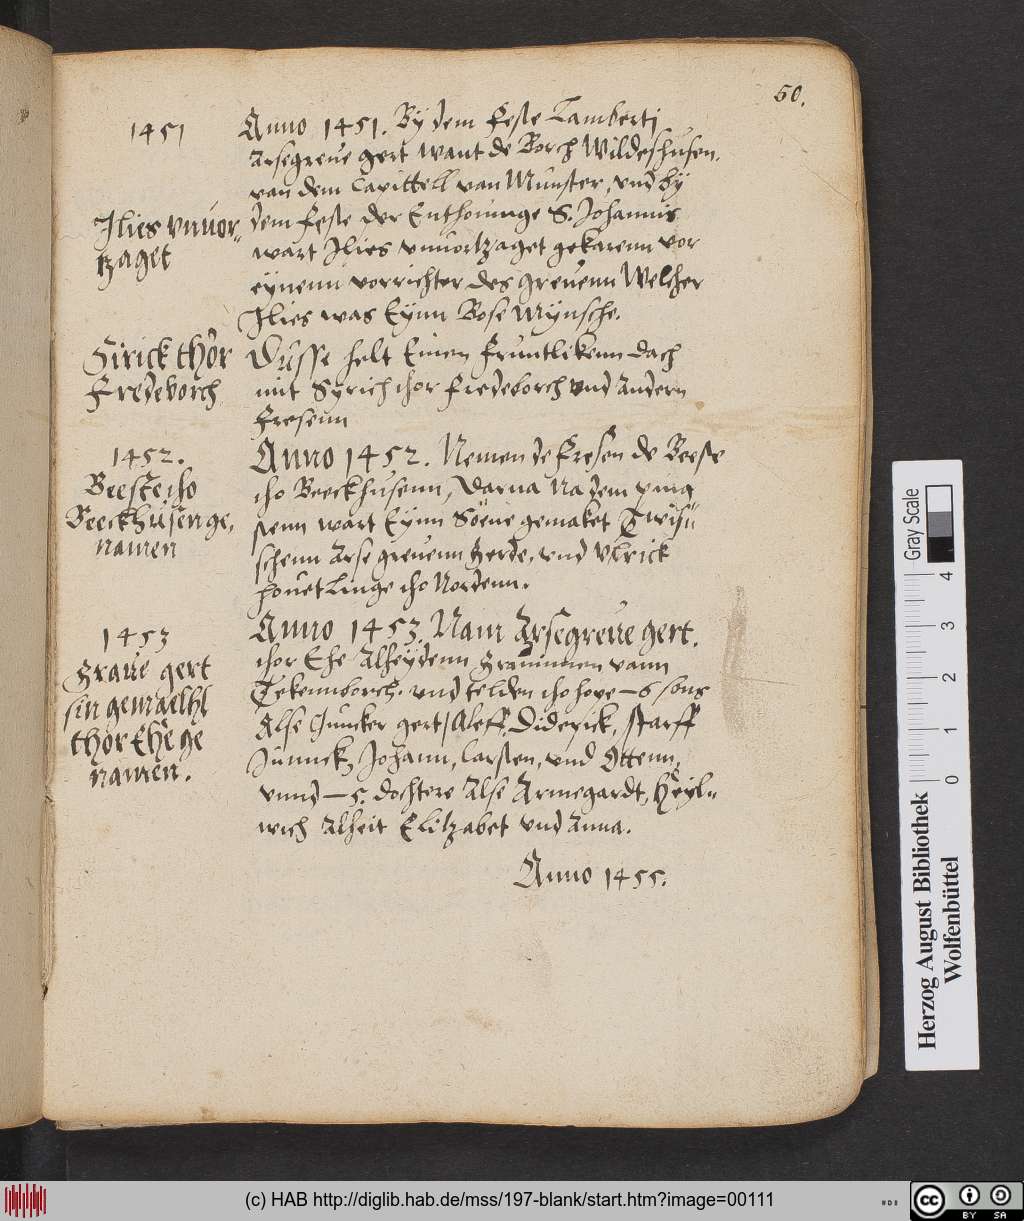 50.
1451
Anno 1451. By dem Feste Lamberti
Arfegreve gert want de Borch Wildeshusen.
van dem Capittell van Munster, und by
Ilies unvor-
tzaget
dem feste der Enthovinge S. Johannis
wart Ilies unvortzaget gekarenn vor
eynenn vorrichter des greuenn Welcher
Ilies was Eynn Bose Mynsche.
Sirick thor
Fredeborch
Dusse helt Einen Fruntlikenn dach
mit Syrich thor Fredeborch und Andern
Fresenn
1452.
Beeste tho
Beeckhusen ge,
namen
Anno 1452. Nemen de Fresen de Beeste
tho Beeckhusenn, Darna Na dem
wart Eynn Soene gemaket Twisu
schenn Arfe greuenn Gerde, und Ulrick
houetlinge tho Nordenn.
1453
Graue gert
sin gemaelhl
thor Ehe ge
namen.
Anno 1453. Nam Arfegreue gert.
thor Ehe Alheydenn Grauinnen vann
Tekennborch. und telden tho hope – 6 sons
Alse Juncker gert, Aleff, Diderick, starff
Junnck, Johann, Carsten, und Ottenn,
vnnd – 5. dochtere Alse Armegardt, Heyl-
wich Alheit Elitzabet und Anna.
Anno 1455.
Gray Scale
0 1 2 3 4
Herzog August Bibliothek
Wolfenbüttel
(c) HAB http://diglib.hab.de/mss/197-blank/start.htm?image=00111
cc BY SA